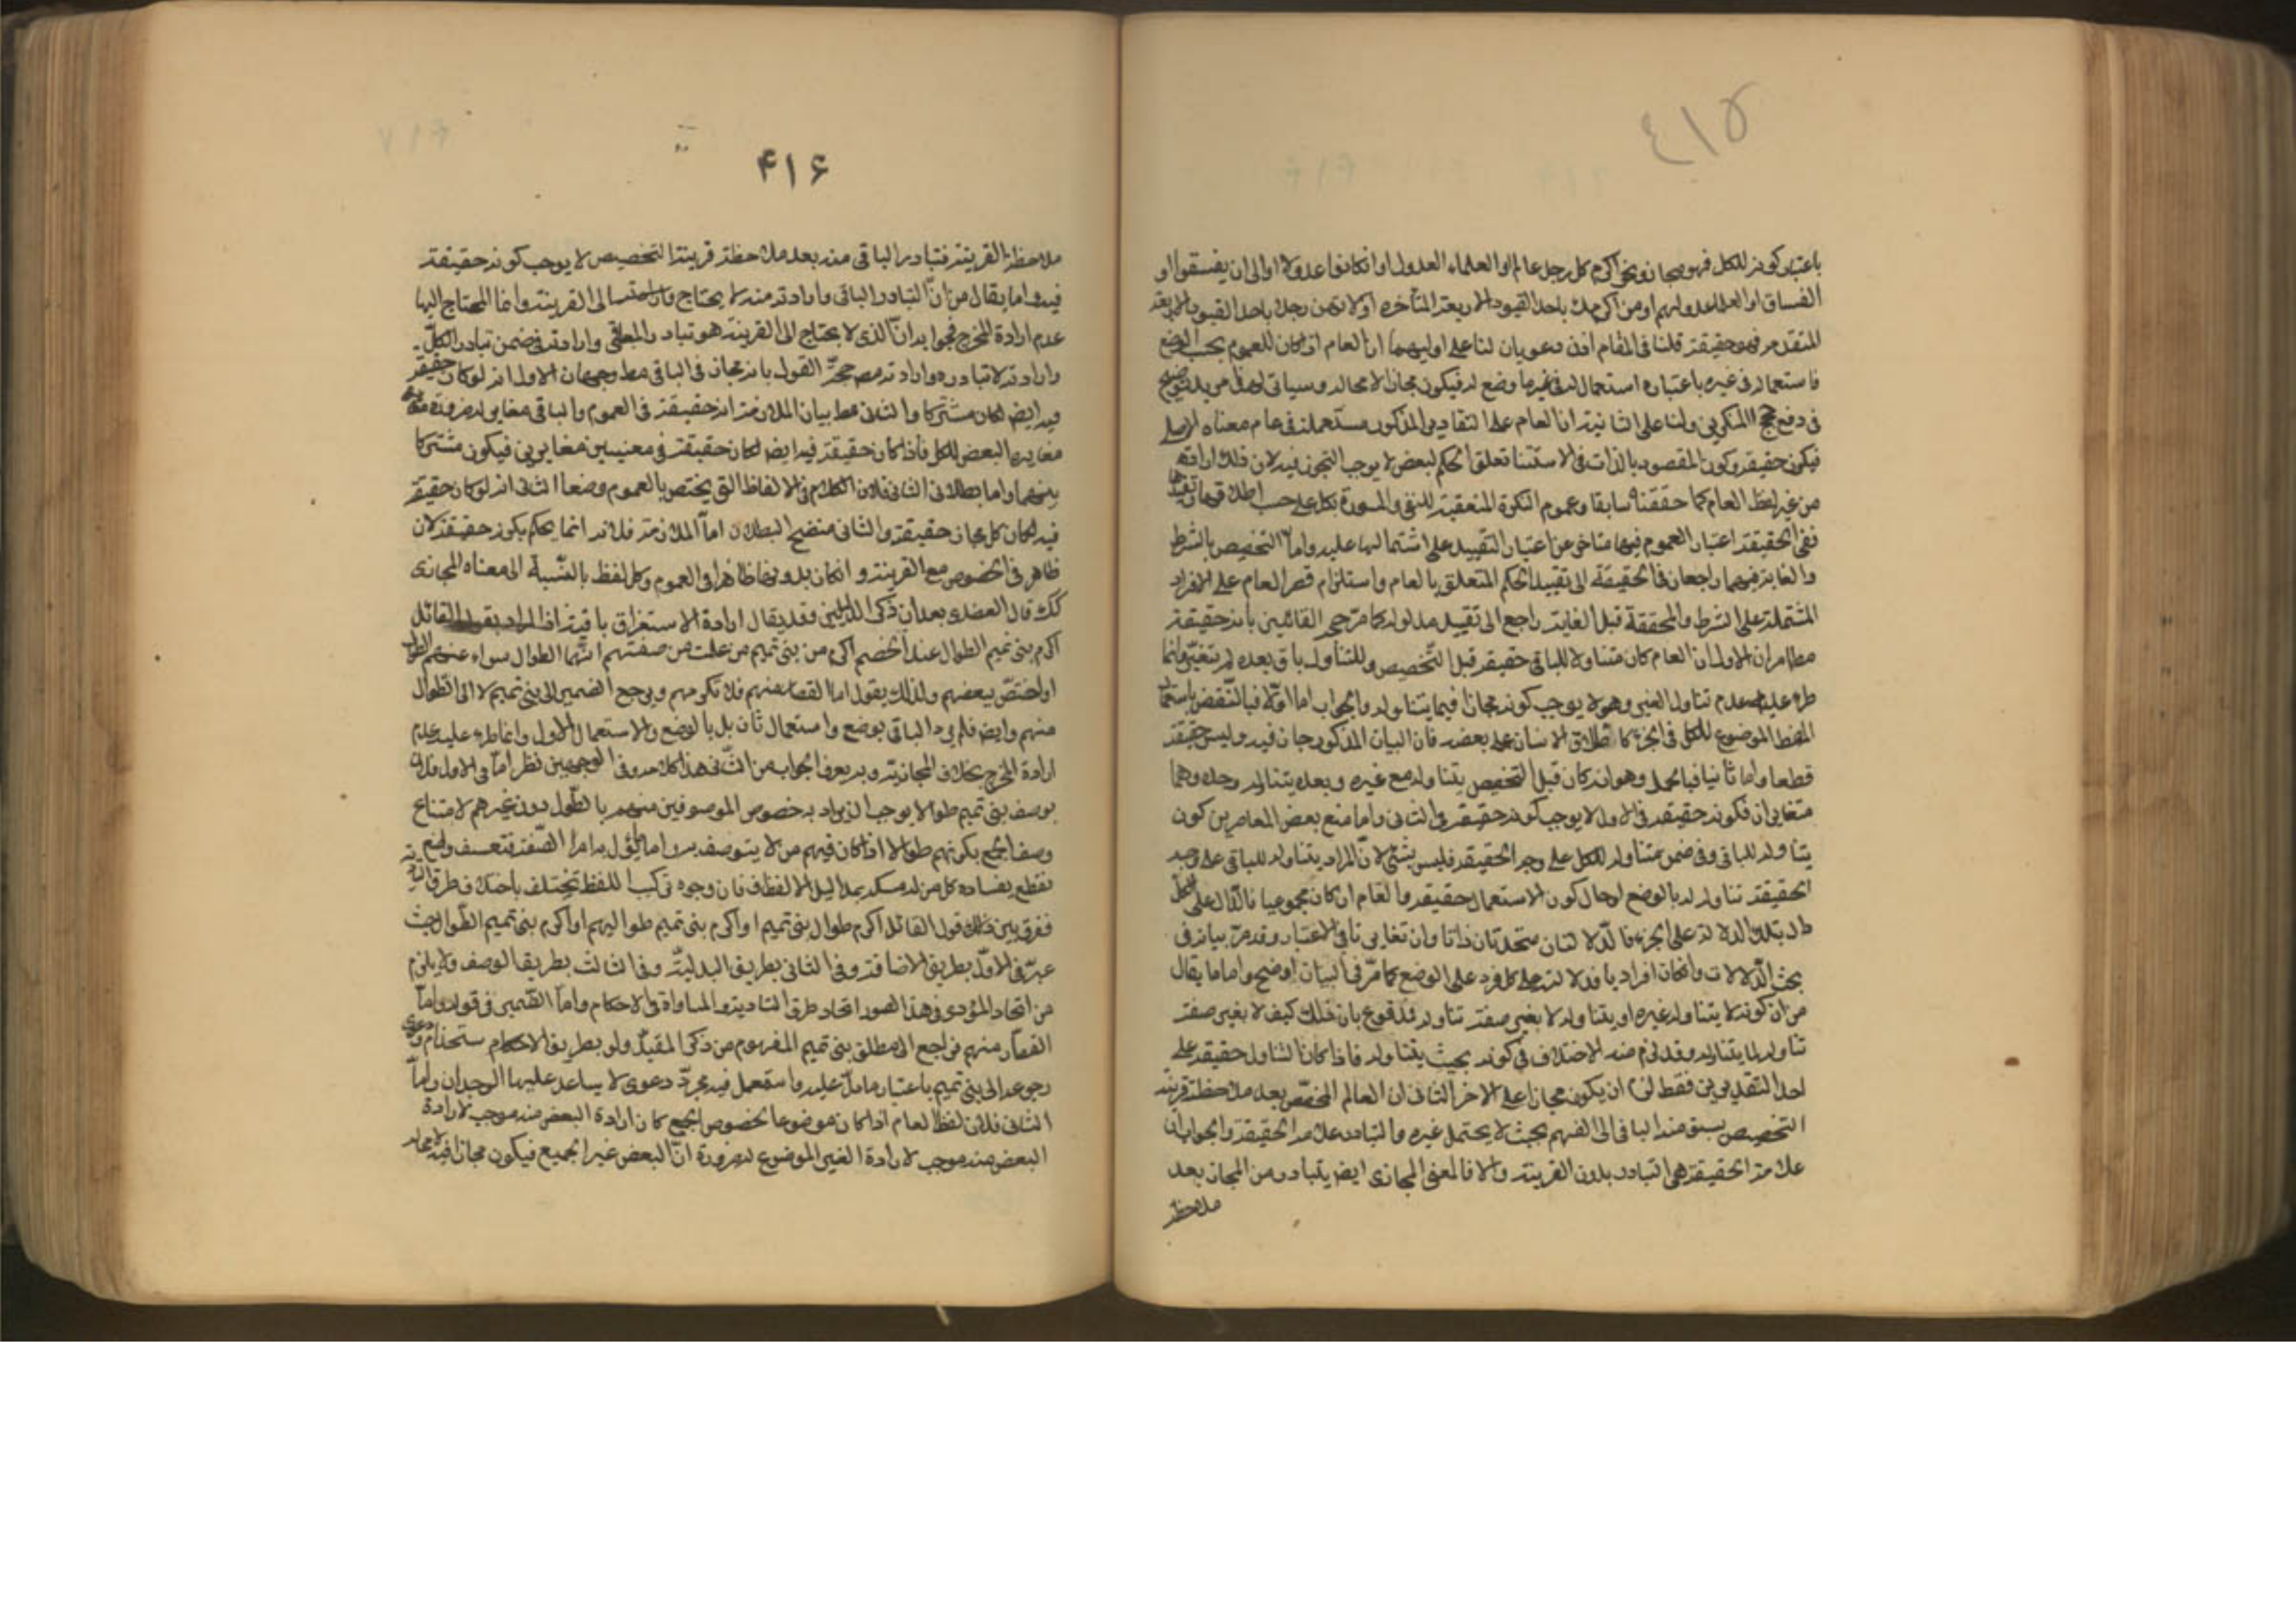 ٤١٥
باعتبار كونه للكل فهو مجاز ونحو اكرم كل رجل عالم او العلماء العدول او ان كانوا عدولا او الى ان يفسقوا او
الفساق او العلماء عدولهم او من اكرمك باحد القيود الاربعة المتأخرة او لا تهن رجلا باحد القيود الاربعة
المتقدمة فهو حقيقة قلنا فى المقام اذن دعويان لنا على اوليهما ان العام اذا كان للعموم بحسب الوضع
فاستعماله فى غيره باعتباره استعمال له فى غير ما وضع له فيكون مجازا لا محالة وسياتى لهذا مزيد توضيح
فى دفع حجج المنكرين ولنا على الثانية ان العام على التقادير المذكورة مستعملة فى عام معناه الاصلى
فيكون حقيقة وكون المقصود بالذات فى الاستثنا تعلق الحكم لبعض لا يوجب التجوز فيه لان ذلك ارادته
من غير لفظ العام كما حققنا سابقا وعموم النكرة المتعقبة للنفى والمسورة بكل على حسب اطلاقها وتقييدها
نفى الحقيقة اعتبار العموم فيها متاخر عن اعتبار التقييد على اشتمالها عليه واما التخصيص بالشرط
والغاية فهما راجعان فى الحقيقة الى تقييد الحكم المتعلق بالعام واستلزام قصر العام على الافراد
المشتملة على الشرط والمحققة قبل الغاية راجع الى تقييد مدلوله كما مر حجة القائلين بانه حقيقة
مطا امران الاول ان العام كان متناولا للباقى حقيقة قبل التخصيص وللتناول باق بعده لم يتغير وانما
طرء عليه عدم تناول الغير وهو لا يوجب كونه مجازا فيما يتناوله والجواب اما اولا فبالنقض باستعمال
اللفظ الموضوع للكل فى الجزء كاطلاق الانسان على بعضه فان البيان المذكور جار فيه وليس حقيقة
قطعا واما ثانيا فبالحل وهو انه كان قبل التخصيص يتناوله مع غيره وبعده يتناوله وحده وهما
متغايران فكونه حقيقة فى الاول لا يوجب كونه حقيقة فى الثانى واما منع بعض المعاصرين كون
يتناوله للباقى فى ضمن متناوله للكل على وجه الحقيقة فليس بشئ لان المراد يتناوله للباقى على وجه
الحقيقة تناوله له بالوضع او حال كون الاستعمال حقيقة والعام ان كان مجموعيا فالدال على الكل
دال بتلك الدلالة على الجزء فالدلالتان متحدتان ذاتا وان تغايرتا فى الاعتبار وقد مر بيانه فى
بحث الدلالات وان كان افراديا فدلالته على كل فرد على الوضع كما مر فى البيان اوضح واما ما يقال
من ان كونه لا يتناول غيره او يتناوله لا يغير صفة تناوله فمدفوع بان ذلك كيف لا يغير صفة
تناوله لما يتناوله وقد لزم منه الاختلاف فى كونه بحيث يتناوله فاذا كان التناول حقيقة على
احد التقديرين فقط لزم ان يكون مجازا على الاخر الثانى ان العالم المخصص بعد ملاحظة قرينة
التخصيص يسبق منه الباقى الى الفهم بحيث لا يحتمل غيره والتبادر علامة الحقيقة والجواب ان
علامة الحقيقة هى التبادر بدون القرينة والا فالمعنى المجازى ايض يتبادر من المجاز بعد
ملاحظة
۴۱۶
ملاحظة القرينة فتبادر الباقى منه بعد ملاحظة قرينة التخصيص لا يوجب كونه حقيقة
فيه واما يقال من ان التبادر الباقى وارادته منه لا يحتاج الى القرينة وانما المحتاج اليها
عدم ارادة المخرج فجوابه ان الذى لا يحتاج الى القرينة هو تبادر الباقى وارادته فى ضمن تبادر الكل
وارادته لا تبادره وارادته مع حجة القول بانه مجاز فى الباقى مط وجهان الاول انه لو كان حقيقة
فيه ايض لكان مشتركا والثانى مط بيان الملازمة انه حقيقة فى العموم والباقى مغاير له ضرورة
مغايرة البعض للكل فاذا كان حقيقة فيه ايض لكان حقيقة فى معنيين مغايرين فيكون مشتركا
بينهما واما بطلان الثانى فلان الكلام فى الالفاظ التى يختص بالعموم وضعا الثانى انه لو كان حقيقة
فيه لكان كل مجاز حقيقة والثانى متضح البطلان اما الملازمة فلانه انما يحكم بكونه حقيقة لانه
ظاهر فى الخصوص مع القرينة وان كان بدونها ظاهرا فى العموم وكل لفظ بالنسبة الى معناه المجازى
كك قال العضدى بعد ان ذكر الدليلين وقد يقال ارادة الاستغراق باقية اذ المراد بقول القائل
اكرم بنى تميم الطوال عند الخصم اكرم من بنى تميم من علمت من صفتهم انهم الطوال سواء عمهم الطول
او اختص ببعضهم ولذلك يقول اما القصار منهم فلا تكرمهم ويرجع الضمير الى بنى تميم لا الى الطوال
منهم وايض فلم يرد الباقى بوضع واستعمال ثان بل بالوضع والاستعمال الاول وانما طرء عليه عدم
ارادة المخرج بخلاف المجازية وبه يعرف الجواب من الثانى هذا كلامه وفى الوجهين نظر اما فى الاول فلان
بوصف بنى تميم طوالا يوجب ان يراد به خصوص الموصوفين منهم بالطول دون غيرهم لامتناع
وصف الجمع بكونهم طوالا اذا كان فيهم من لا يتوصف به واما تاول هذه الصفة فتعسف واضع
نقطع بفساده كل من له مسكة بمداليل الالفاظ فان وجوه تركيب اللفظ يختلف باختلاف طرق التادية
ففرق بين ذلك قول القائل اكرم طوال بنى تميم او اكرم بنى تميم طوالهم او اكرم بنى تميم الطوال حيث
عبر فى الاول بطريق الاضافة وفى الثانى بطريق البدلية وفى الثالث بطريق الوصف ولا يلزم
من اتحاد المؤدى فى هذه الصور اتحاد طرق التادية والمساواة فى الاحكام واما الضمير فى قوله واما
القصار منهم فراجع الى مطلق بنى تميم المفهوم من ذكر المقيد ولو بطريق الاستخدام ودعوى
رجوعه الى بنى تميم باعتبار ما دل عليه واستعمل فيه مجرد دعوى لا يساعد عليها الوجدان واما
الثانى فلان لفظ العام اذا كان موضوعا لخصوص الجمع كان ارادة البعض منه موجب لارادة
البعض منه موجب لارادة الغير الموضوع له ضرورة ان البعض غير الجميع فيكون مجازا فيه لا محالة